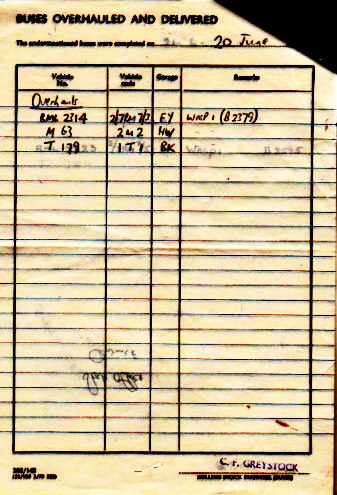 BUSES OVERHAULED AND DELIVERED
The undermentioned buses were completed on 20 June
Vehicle No. Vehicle code Garage Remarks
Overhauls
RML 2314 2/7RM 7/3 EY WRAP 1 (B2379)
M 63 2M2 HW
T 179 1T1 BK
C. F. GREYSTOCK